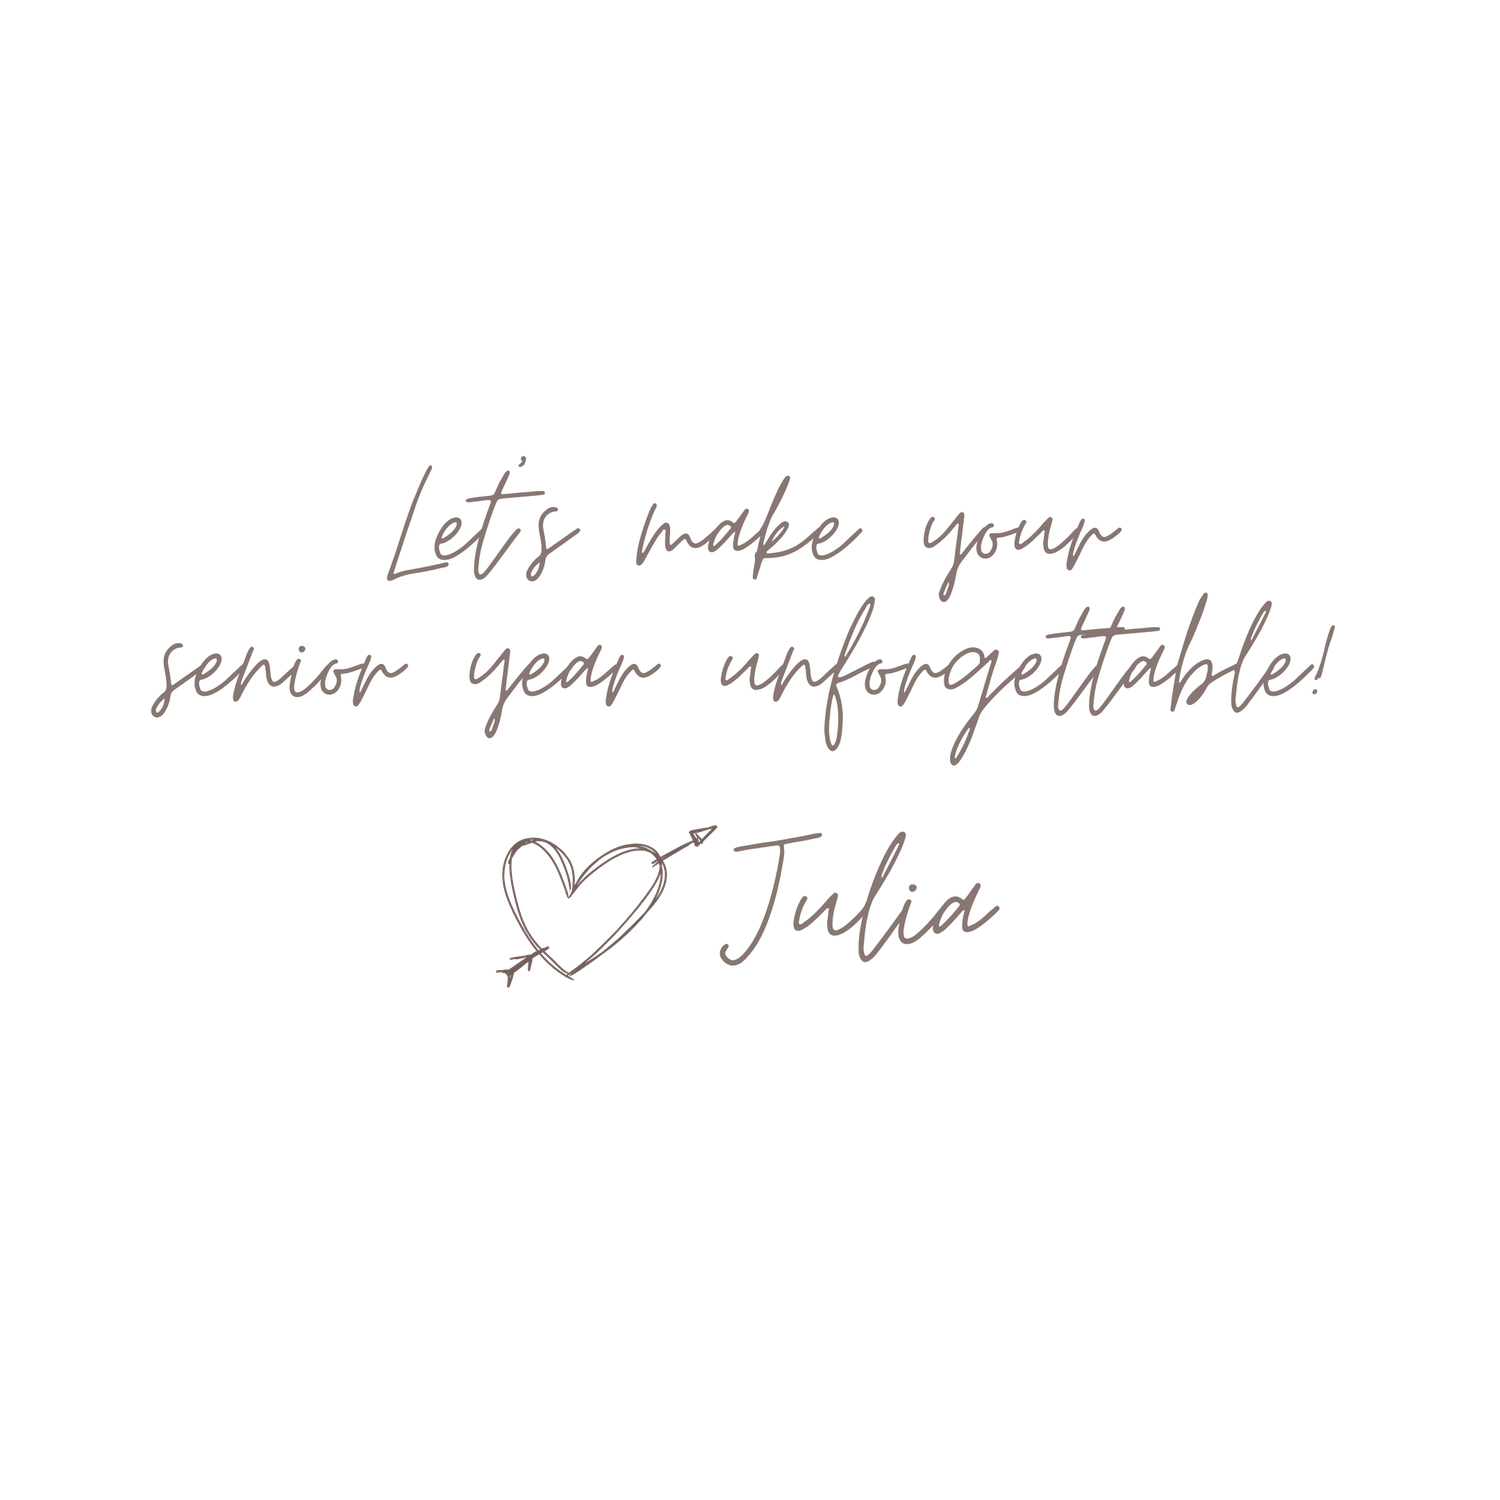 Let's make your
senior year unforgettable!
Julia